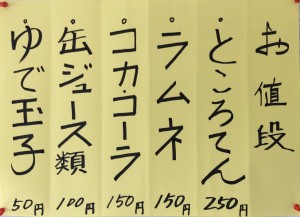 お値段
・ところてん 250円
・ラムネ 150円
・コカ・コーラ 150円
・缶ジュース類 100円
・ゆで玉子 50円